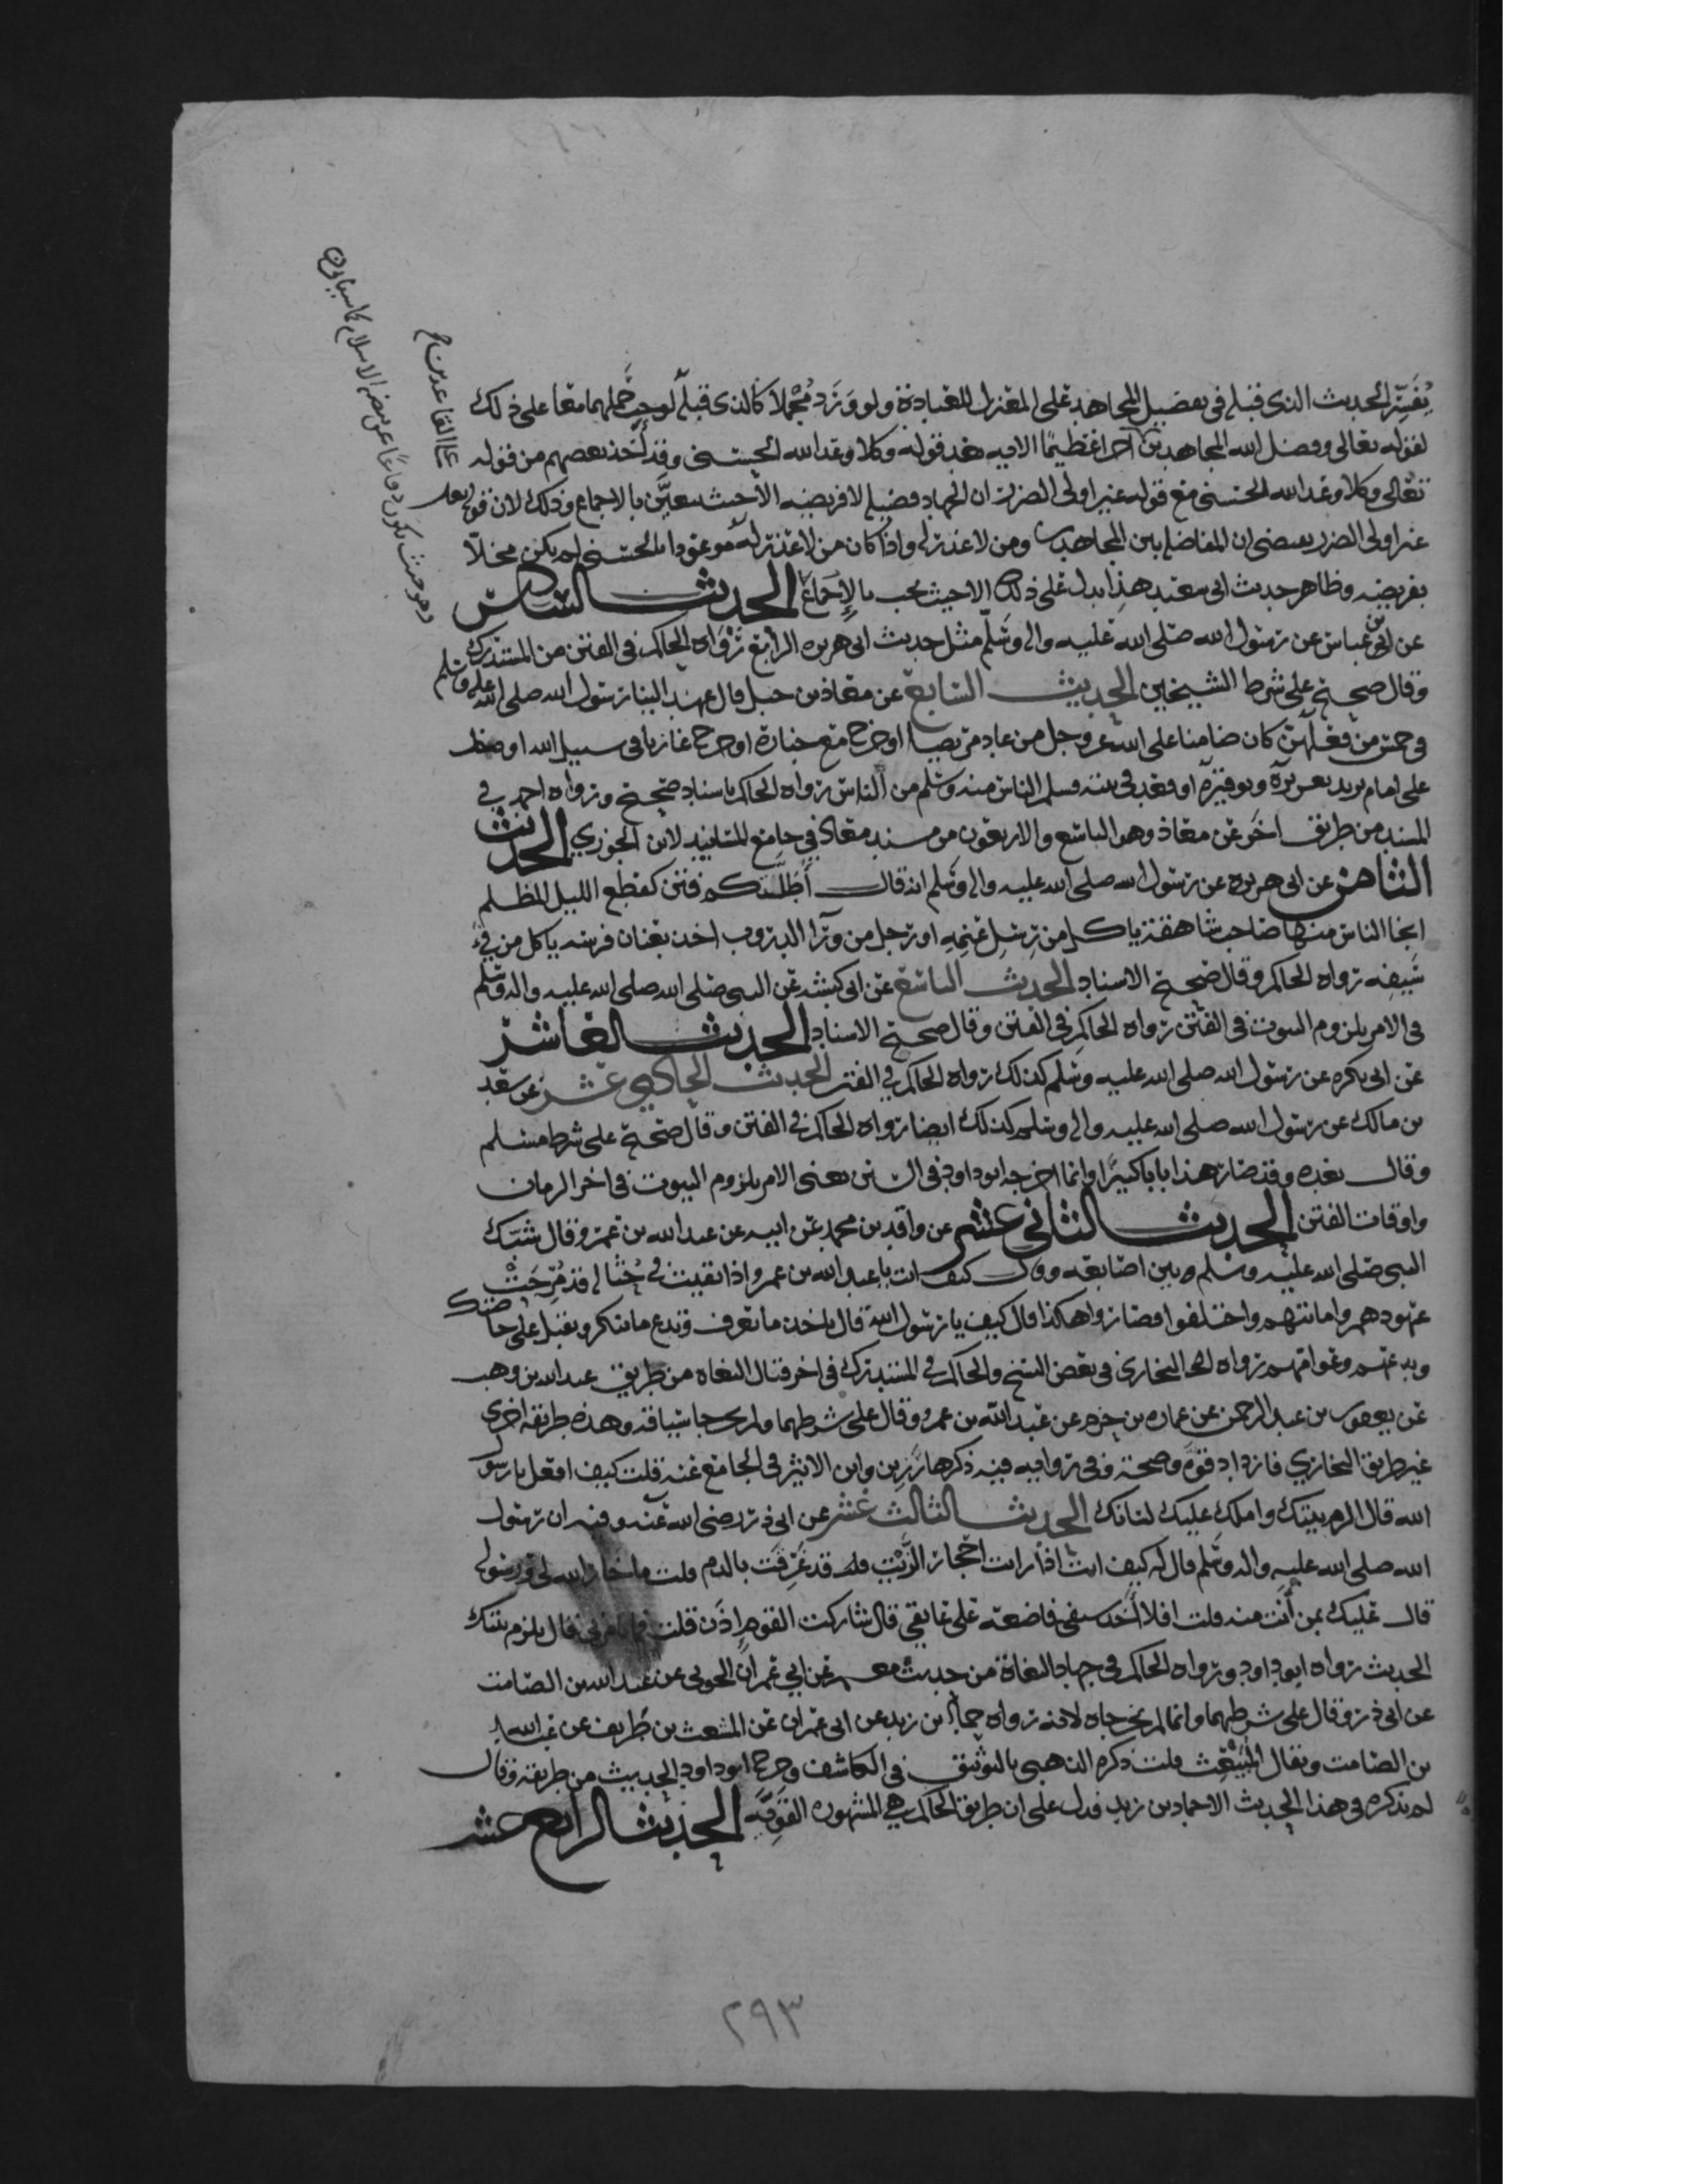 يُفَسِّر الحديث الذي قبله في تفضيل المجاهد على المعتزل للعبادة ولو وَرَد مُجْملاً كالذي قبله لوجب حَملهما معا على ذلك
لقوله تعالى وفضل الله المجاهدين اجرا عظيما الايه بعد قوله وكلا وعد الله الحسنى وقد أخذ بعضهم من قوله
تعالى وكلا وعد الله الحسنى مع قوله غير اولي الضرر ان الجهاد فضيله لا فريضه الا حيث يتعيَّن بالاجماع وذلك لان قوله تعالى
غير اولي الضرر يقتضي ان المفاضله بين المجاهدين ومن لا عذر له واذا كان من لا عذر له موعودا بالحسنى لم يكن مخلاّ
بفريضه وظاهر حديث ابي سعيد هذا يدل على ذلك الا حيث يجب بالإجماع الحديث السادس
عن ابن عباس عن رسول الله صلى الله عليه واله وسلم مثل حديث ابي هريره الرابع رواه الحاكم في الفتن من المستدرك
وقال صحيح على شرط الشيخين الحديث السابع عن معاذ بن جبل قال عهد الينا رسول الله صلى الله عليه وسلم
في خمس من فعلهن كان ضامنا على الله عز وجل من عاد مريضا او خرج مع جنازة او خرج غازيا في سبيل الله او دخل
على امام يريد تعزيره وتوقيره او قعد في بيته فسلم الناس منه وسلم من الناس رواه الحاكم باسناد صحيح ورواه احمد في
المسند من طريق اخر عن معاذ وهو التاسع والاربعون من مسند معاذ في جامع المسانيد لابن الجوزي الحديث
الثامن عن ابي هريره عن رسول الله صلى الله عليه واله وسلم انه قال أظلتكم فتن كقطع الليل المظلم
انجا الناس منها صاحب شاهقة ياكل من رِسْل غنمه او رجل من ورآ الدروب اخذ بعنان فرسه ياكل من فيْ
سَيفه رواه الحاكم وقال صحيح الاسناد الحديث التاسع عن ابي كبشه عن النبي صلى الله صلى الله عليه واله وسلم
في الامر بلزوم البيوت في الفتن رواه الحاكم في الفتن وقال صحيح الاسناد الحديث العاشر
عن ابي بكره عن رسول الله صلى الله عليه وسلم كذلك رواه الحاكم في الفتن الحديث الحادي عشر عن سعد
بن مالك عن رسول الله صلى الله عليه واله وسلم كذلك ايضا رواه الحاكم في الفتن وقال صحيح على شرط مسلم
وقال بعده وقد صار هذا بابا كبيرا وانما اخرجه ابو داود في السنن يعني الامر بلزوم البيوت في اخر الزمان
واوقات الفتن الحديث الثاني عشر عن واقد بن محمد عن ابيه عن عبد الله بن عمرو قال شبّك
النبي صلى الله عليه وسلم وبين اصابعه وقال كيف انت يا عبد الله بن عمرو اذا بقيت في حُثاله قد مُرِجَتْ
عهودهم واماناتهم واختلفوا فصاروا هكذا قال كيف يا رسول الله قال تاخذ ما تعرف وتدع ما تنكر وتقبل على خاصتك
وتدعهم وعوامهم رواه البخاري في بعض النسخ والحاكم في المستدرك في اخر قتال البغاه من طريق عبد الله بن وهب
عن يعقوب بن عبد الرحمن عن عماره بن حزم عن عبد الله بن عمرو وقال على شرطهما ولم يخرجا سياقه وهذه طريقه اخرى
غير طريق البخاري فازداد قوّه وصحه وفي روايه فيه ذكرها رَزِين وابن الاثير في الجامع عنه قلت كيف افعل يا رسول
الله قال الزم بيتك واملك عليك لسانك الحديث الثالث عشر عن ابي ذر رضي الله عنه وفيه ان رسول
الله صلى الله عليه واله وسلم قال له كيف انت اذا رايت احجار الزَّيْت قد غَرِقَت بالدم قلت ما خار الله لي ورسوله
قال عليك بمن أنت منه قلت افلا أخذ سيفي فاضعه على عاتقي قال شاركت القوم إذن قلت فما تامرني قال تلزم بيتك
الحديث رواه ابو داود ورواه الحاكم في جهاد البغاة من حديث معمر عن ابي عمران الجوني عن عبد الله بن الصامت
عن ابي ذر وقال على شرطهما وانما لم يخرجاه لانه رواه حماد بن زيد عن ابي عمران عن المشعث بن طريف عن عبد الله
بن الصامت ويقال المُنْبَعِث قلت ذكره الذهبي بالتوثيق في الكاشف وخرج ابو داود الحديث من طريقه وقال
لم يذكره في هذا الحديث الا حماد بن زيد فدل على ان طريق الحاكم هي المشهوره القويّه الحديث الرابع عشر
على القاعدين
وهو حيث يكون دفاعًا عن بيضه الاسلام كما سياتي
٢٩٣